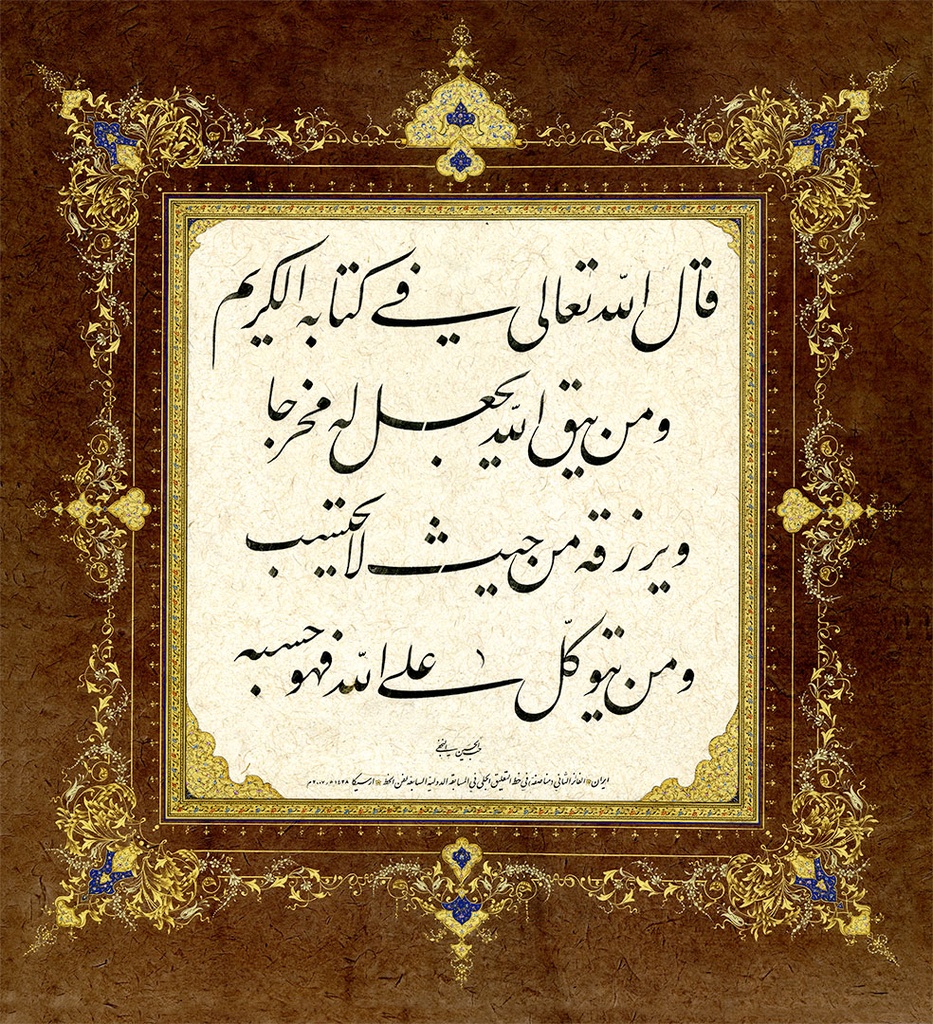 قال الله تعالى في كتابه الكريم
ومن يتق الله يجعل له مخرجا
ويرزقه من حيث لا يحتسب
ومن يتوكّل على الله فهو حسبه
ايران الفائز الثاني (مناصفة) في خط التعليق الجلي في المسابقة الدولية السابعة لفن الخط ارسيكا ١٤٢٨ه‍ ٢٠٠٧م